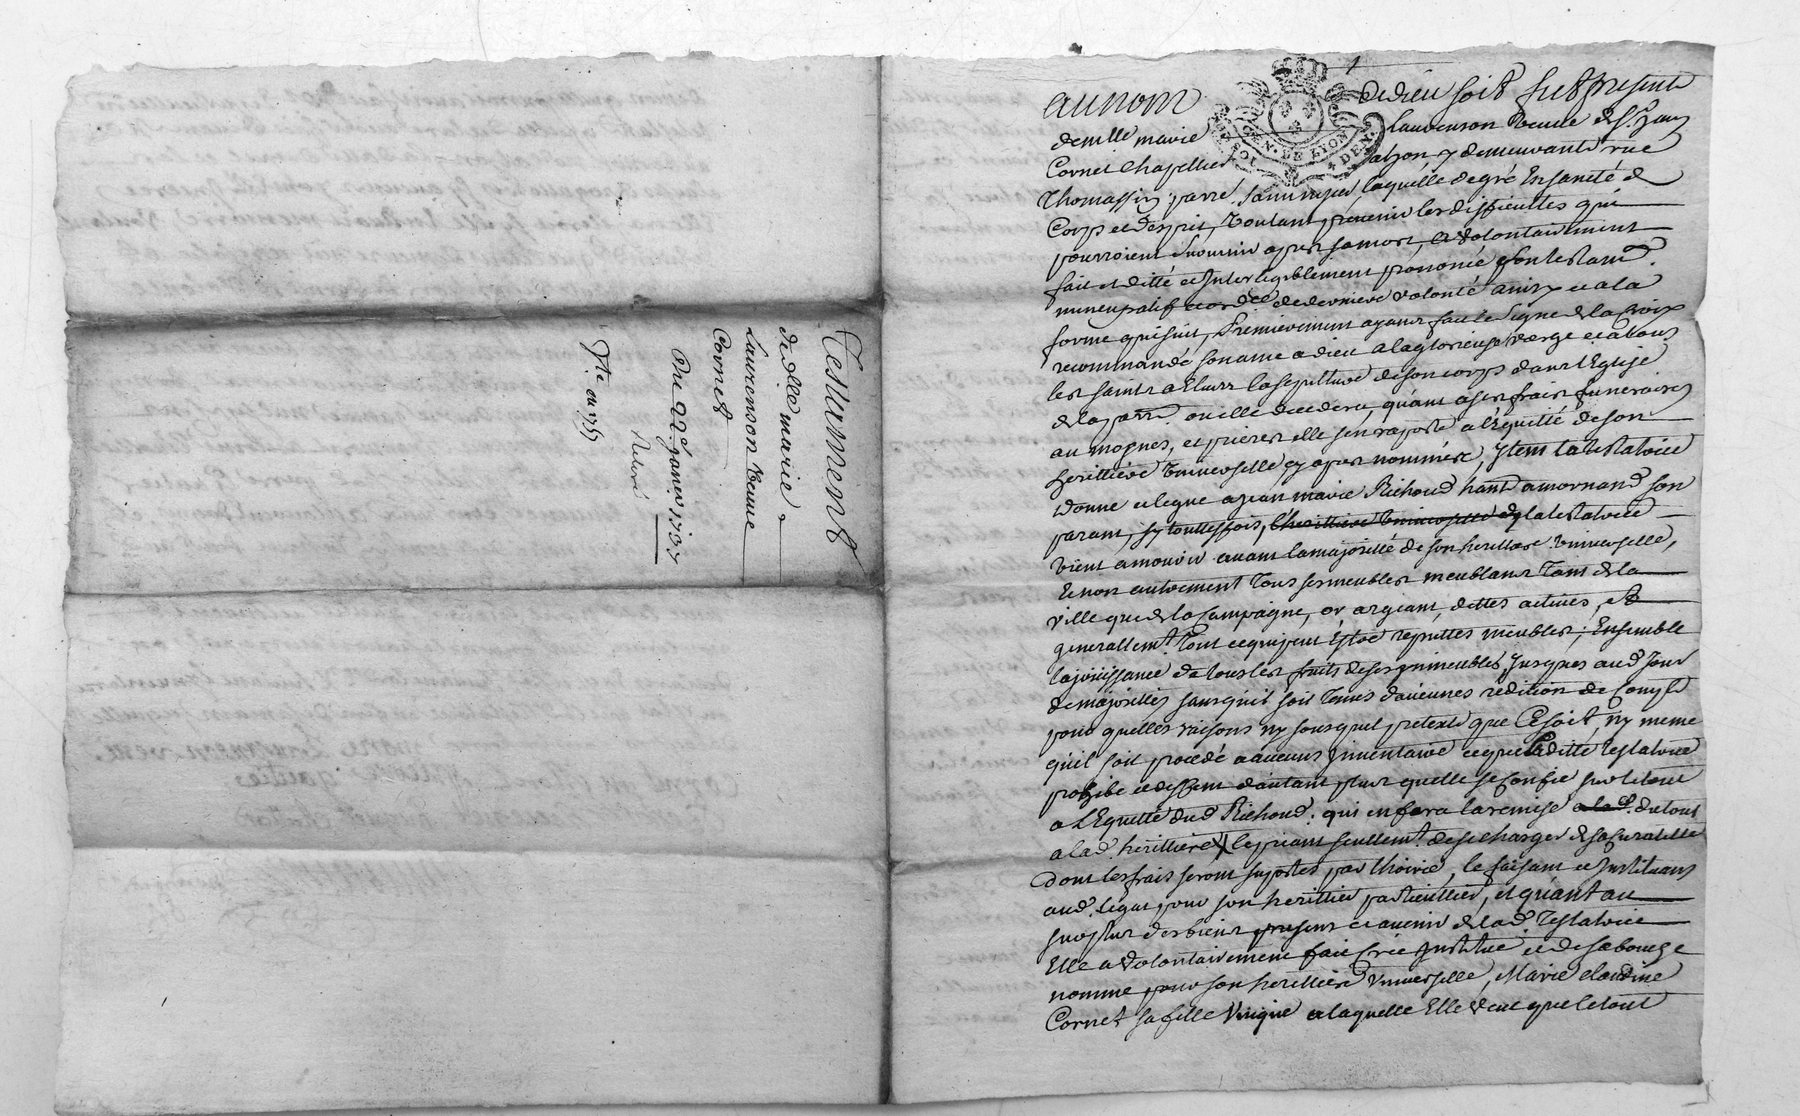 Testament
de dlle marie
Laurenson veuve
Cornet
Du 22e janvier 1737
au nom de dieu soit fut presente
demlle marie Laurenson veuve de Sr. Jean
Cornet chapellier a lyon y demeurante rue
Thomassin parre. saint nizier, laquelle de gré En santé de
Corps et desprit, voulant prevenir les difficultes qui
pourroient survenir apres sa mort, a volontairement
fait et ditté et Inteligiblement prononcé son testamt.
nuncupatif et ordce de derniere volonté ainsy et a la
forme qui suit, Premierement ayant fait le signe de la Croix
recommandé son ame a dieu a la glorieuse vierge et a tous
les saints a Eluz la sepulture de son corps dans l'Eglise
de la parre. ou elle decedera, quant a ses frais funeraires
aumosnes, et prieres elle s'en raporte a l'Equitté de son
heritiere universelle cy apres nommée, Item la testatrice
donne et legue a jean marie Richoud hant a mornand son
parant, sy touttesfois, l'heritiere universelle la testatrice
vient a mourir avant la majorité de son heritiere universelle,
Et non autrement tous ses meubles meublans tant de la
ville que de la Campagne, or argeant, dettes actives, et
generallemt. tout ce qui peut Estre reputtés meubles, Ensemble
la jouissance de tous les fruits de ses immeubles jusques aud. jour
de majorittés sans qu'il soit tenus d'aucunes redition de Compte
pour quelles raisons ny sous quel pretexte que Ce soit, ny meme
qu'il soit procedé a aucuns inventaire ce que laditte testatrice
prohibe et deffent d'autant plus quelle se Confie sur le tout
a l'Equitté dud. Richoud. qui en fera la remise a la d. du tout
a lad. heritiere le priant seullemt. de se charger de sa curatelle
dont les frais seront suportes par l'hoirie, le faisant et Instituant
aud. Legat pour son heritier particullier, et quant au
surplus des biens presens et avenir de lad. testatrice
Elle a volontairement fait Crée Institué et de sa bouche
nommé pour son heritiere universelle, Marie claudine
Cornet sa fille unique a laquelle Elle veut que le tout